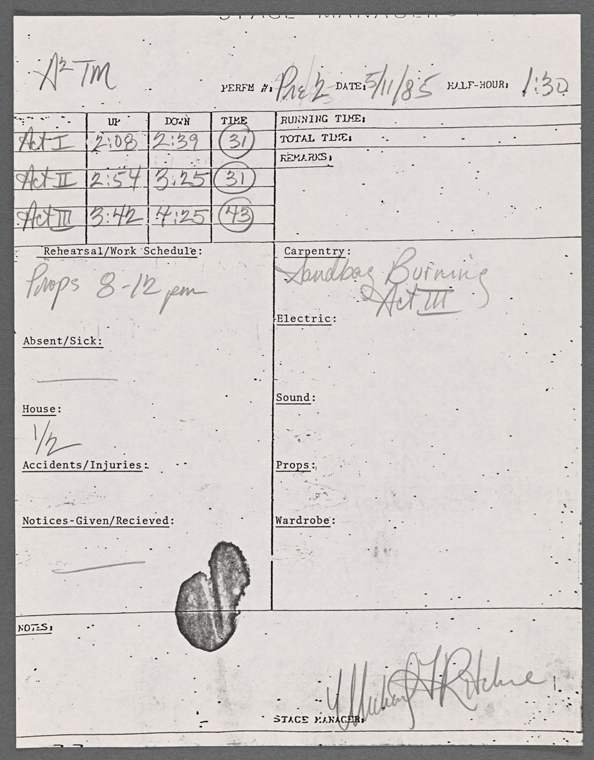 STAGE MANAGER
A² TM
PERFM #: Pre 2 DATE: 5/11/85 HALF-HOUR: 1:30
UP DOWN TIME RUNNING TIME:
Act I 2:08 2:39 31 TOTAL TIME:
REMARKS:
Act II 2:54 3:25 31
Act III 3:42 4:25 43
Rehearsal/Work Schedule: Carpentry:
Props 8-12 pm Sandbag Burning
Act III
Electric:
Absent/Sick:
Sound:
House:
1/2
Accidents/Injuries: Props:
Notices-Given/Recieved: Wardrobe:
NOTES:
Michael F Ritchie
STAGE MANAGER: